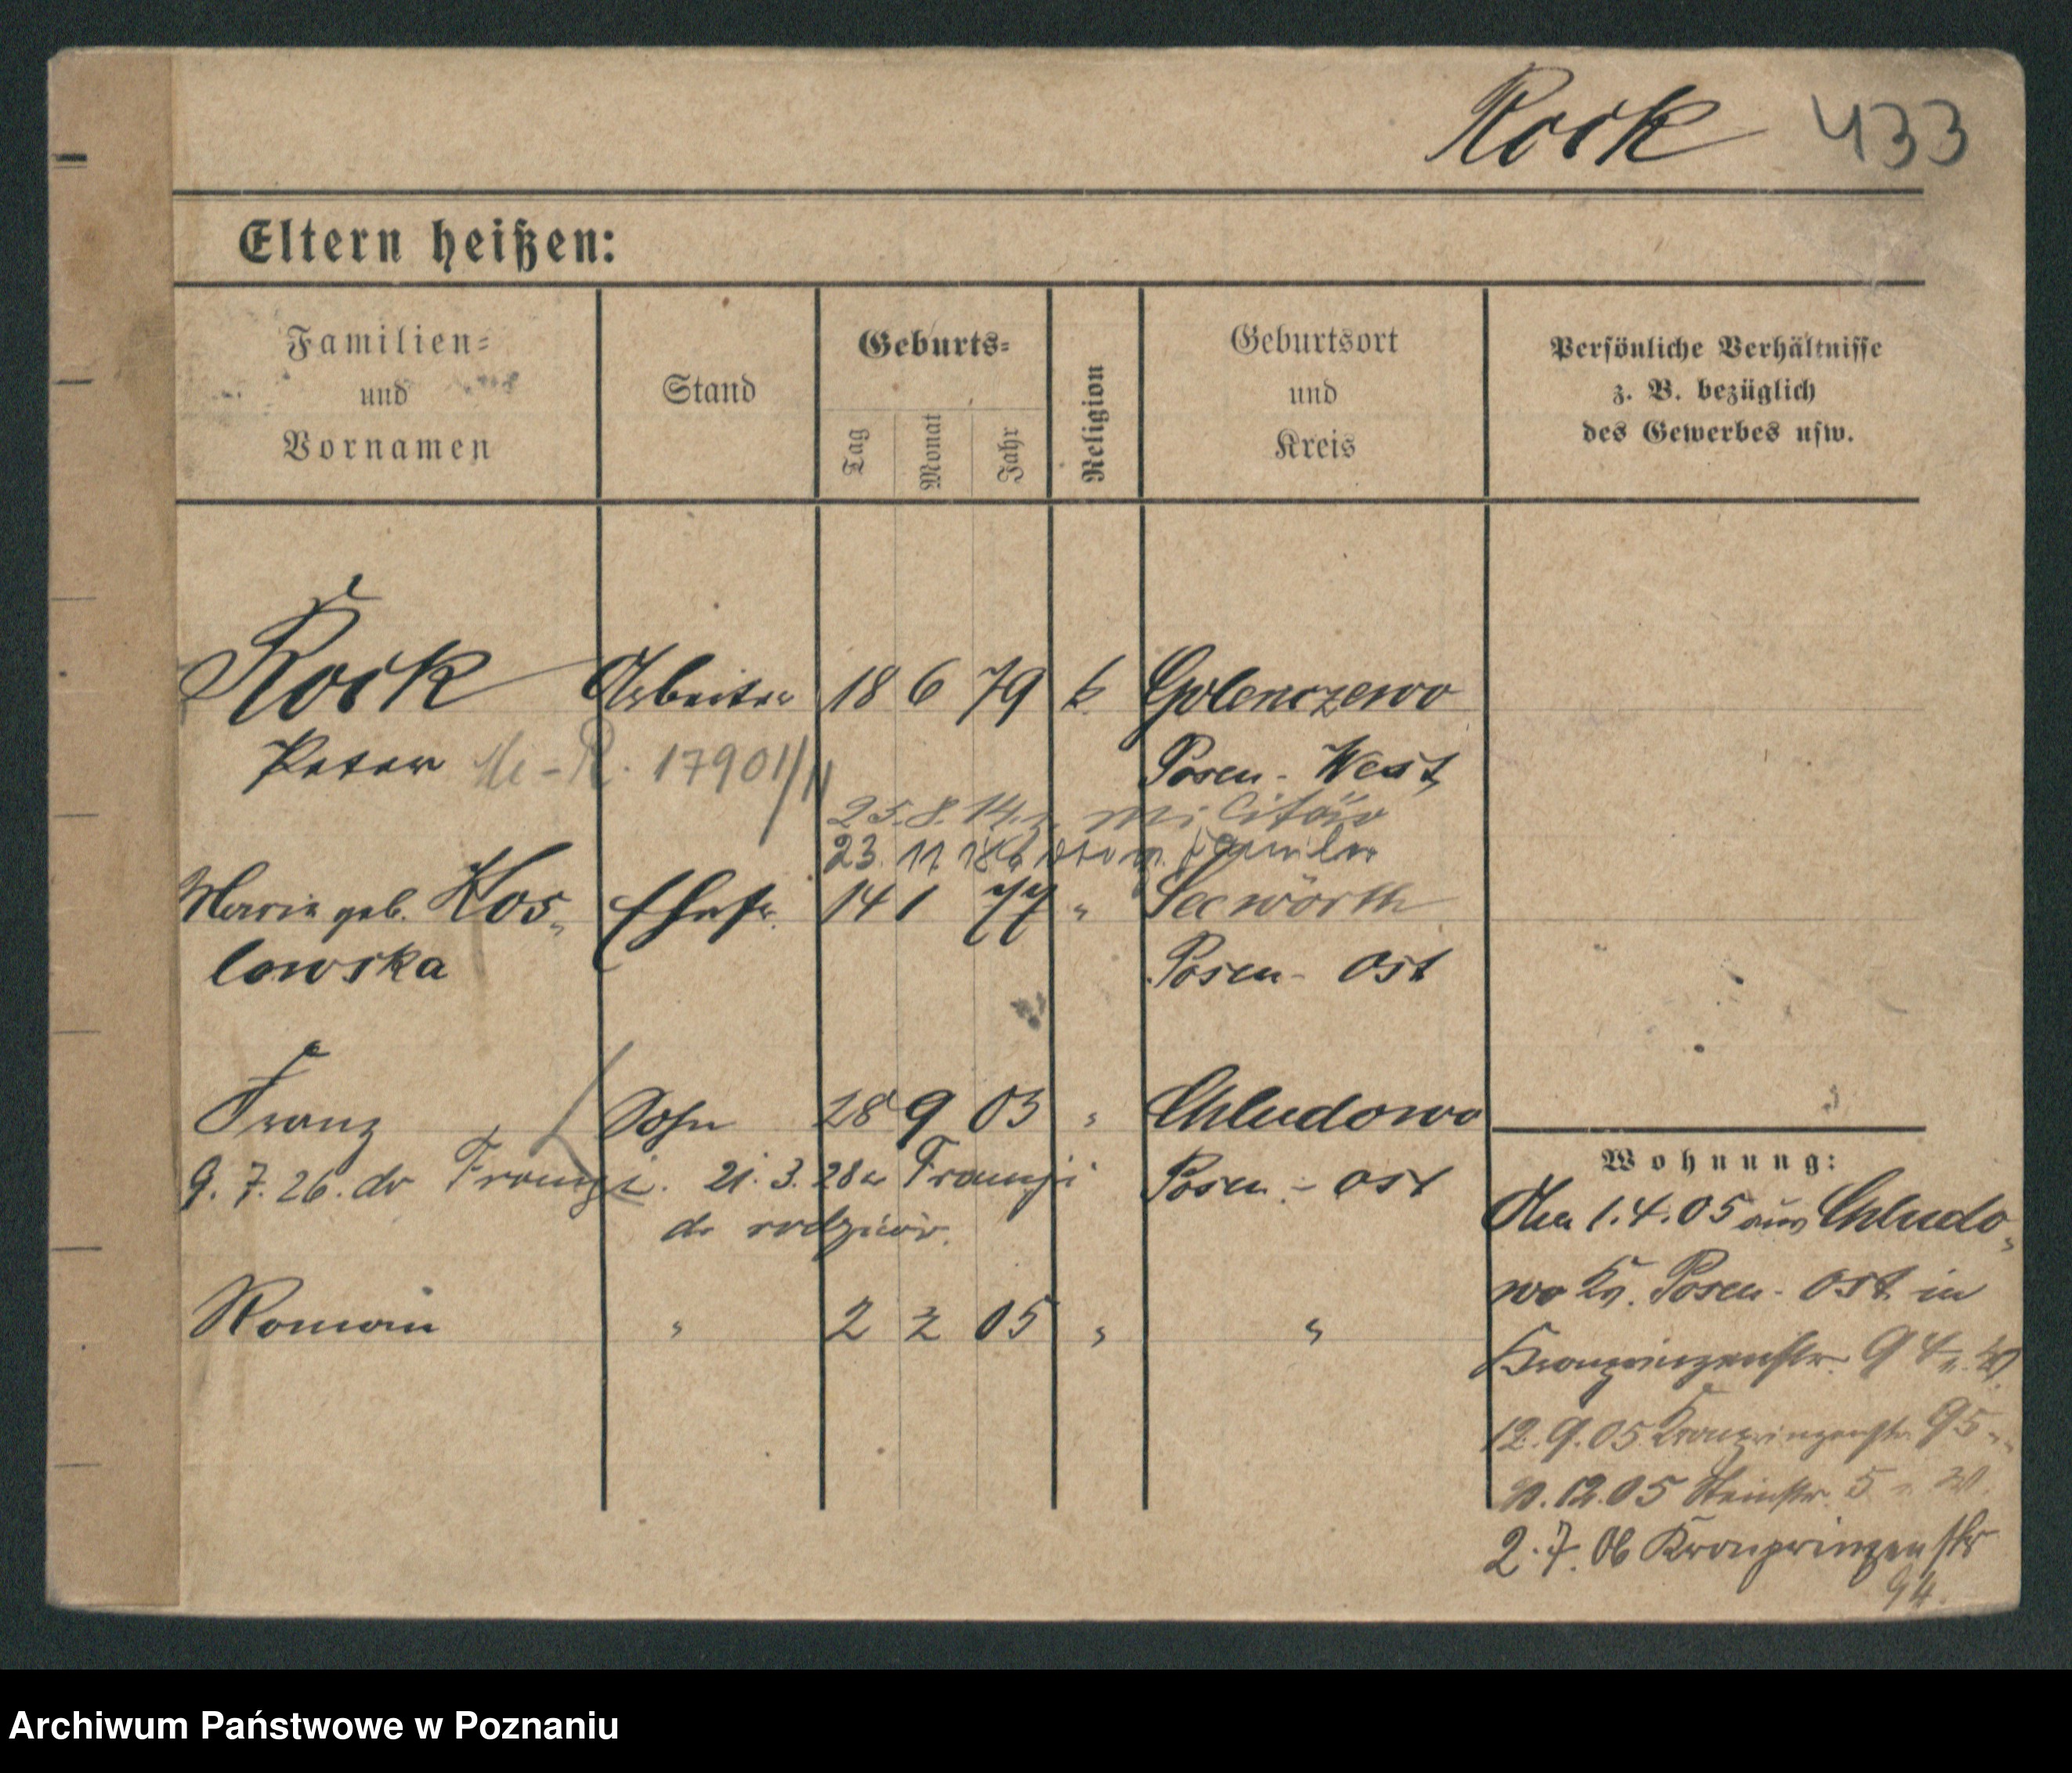 Rock 433
Eltern heißen:
Familien=
und
Vornamen
Stand
Geburts=
Tag
Monat
Jahr
Religion
Geburtsort
und
Kreis
Persönliche Verhältnisse
z. B. bezüglich
des Gewerbes usw.
Rock Arbeiter 18 6 79 k. Golenczewo
Peter 17901/11 Posen - West
25.8.14. z. Militär
23. 11. 18 vom
Maria geb. Kos- Ehefr. 14 1 77 " Seewörth
lowska Posen - Ost
Franz Sohn 28 9 03 " Chludowo
9. 7. 26. do Francji. 21. 3. 28 z Francji Posen - Ost
do rodziców.
Roman " 2 2 05 " "
Wohnung:
1.4.05 aus Chludo-
wo Kr. Posen - Ost in
Kronprinzenstr. 94
12.9.05 Kronprinzenstr. 95
12.05 Steinstr. 5
2.7.06 Kronprinzenstr
94.
Archiwum Państwowe w Poznaniu